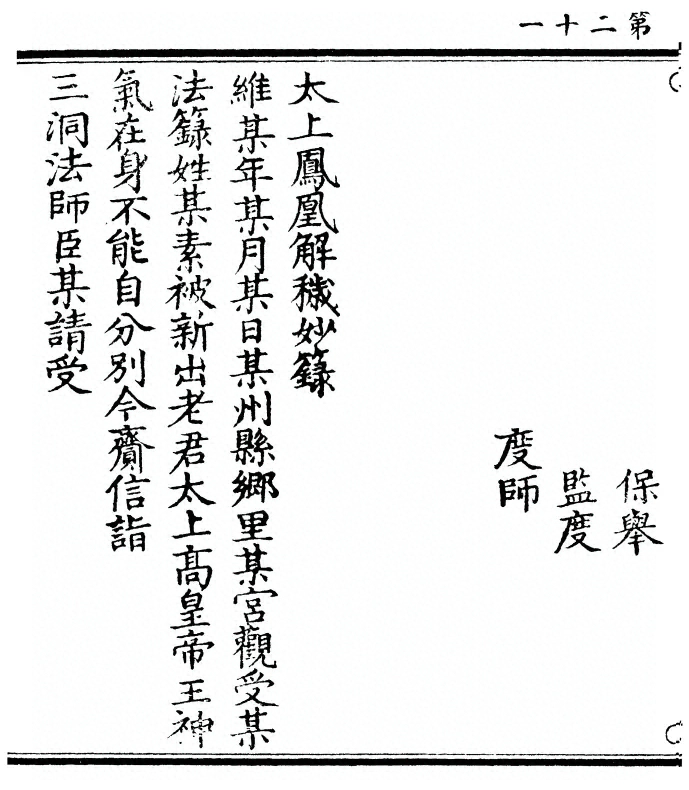 第二十一
保舉
監度
度師
太上鳳凰解穢妙籙
維某年某月某日某州縣鄉里某宮觀受某
法籙姓某素被新出老君太上高皇帝王神
氣在身不能自分別今齎信詣
三洞法師臣某請受